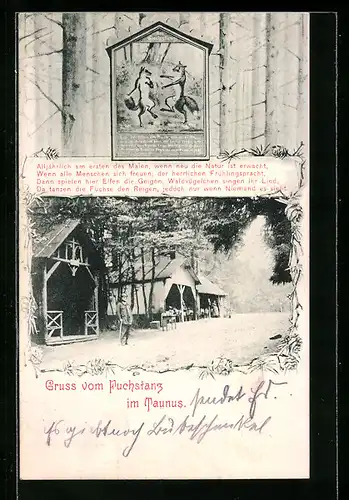 Alljährlich am ersten des Maien, wenn neu die Natur ist erwacht,
Wenn alle Menschen sich freuen, der herrlichen Frühlingspracht,
Dann spielen hier Elfen die Geigen, Waldvögelchen singen ihr Lied,
Da tanzen die Füchse den Reigen, jedoch nur wenn Niemand es sieht.
Gruss vom Fuchstanz
im Taunus. sendet
Es giebt noch